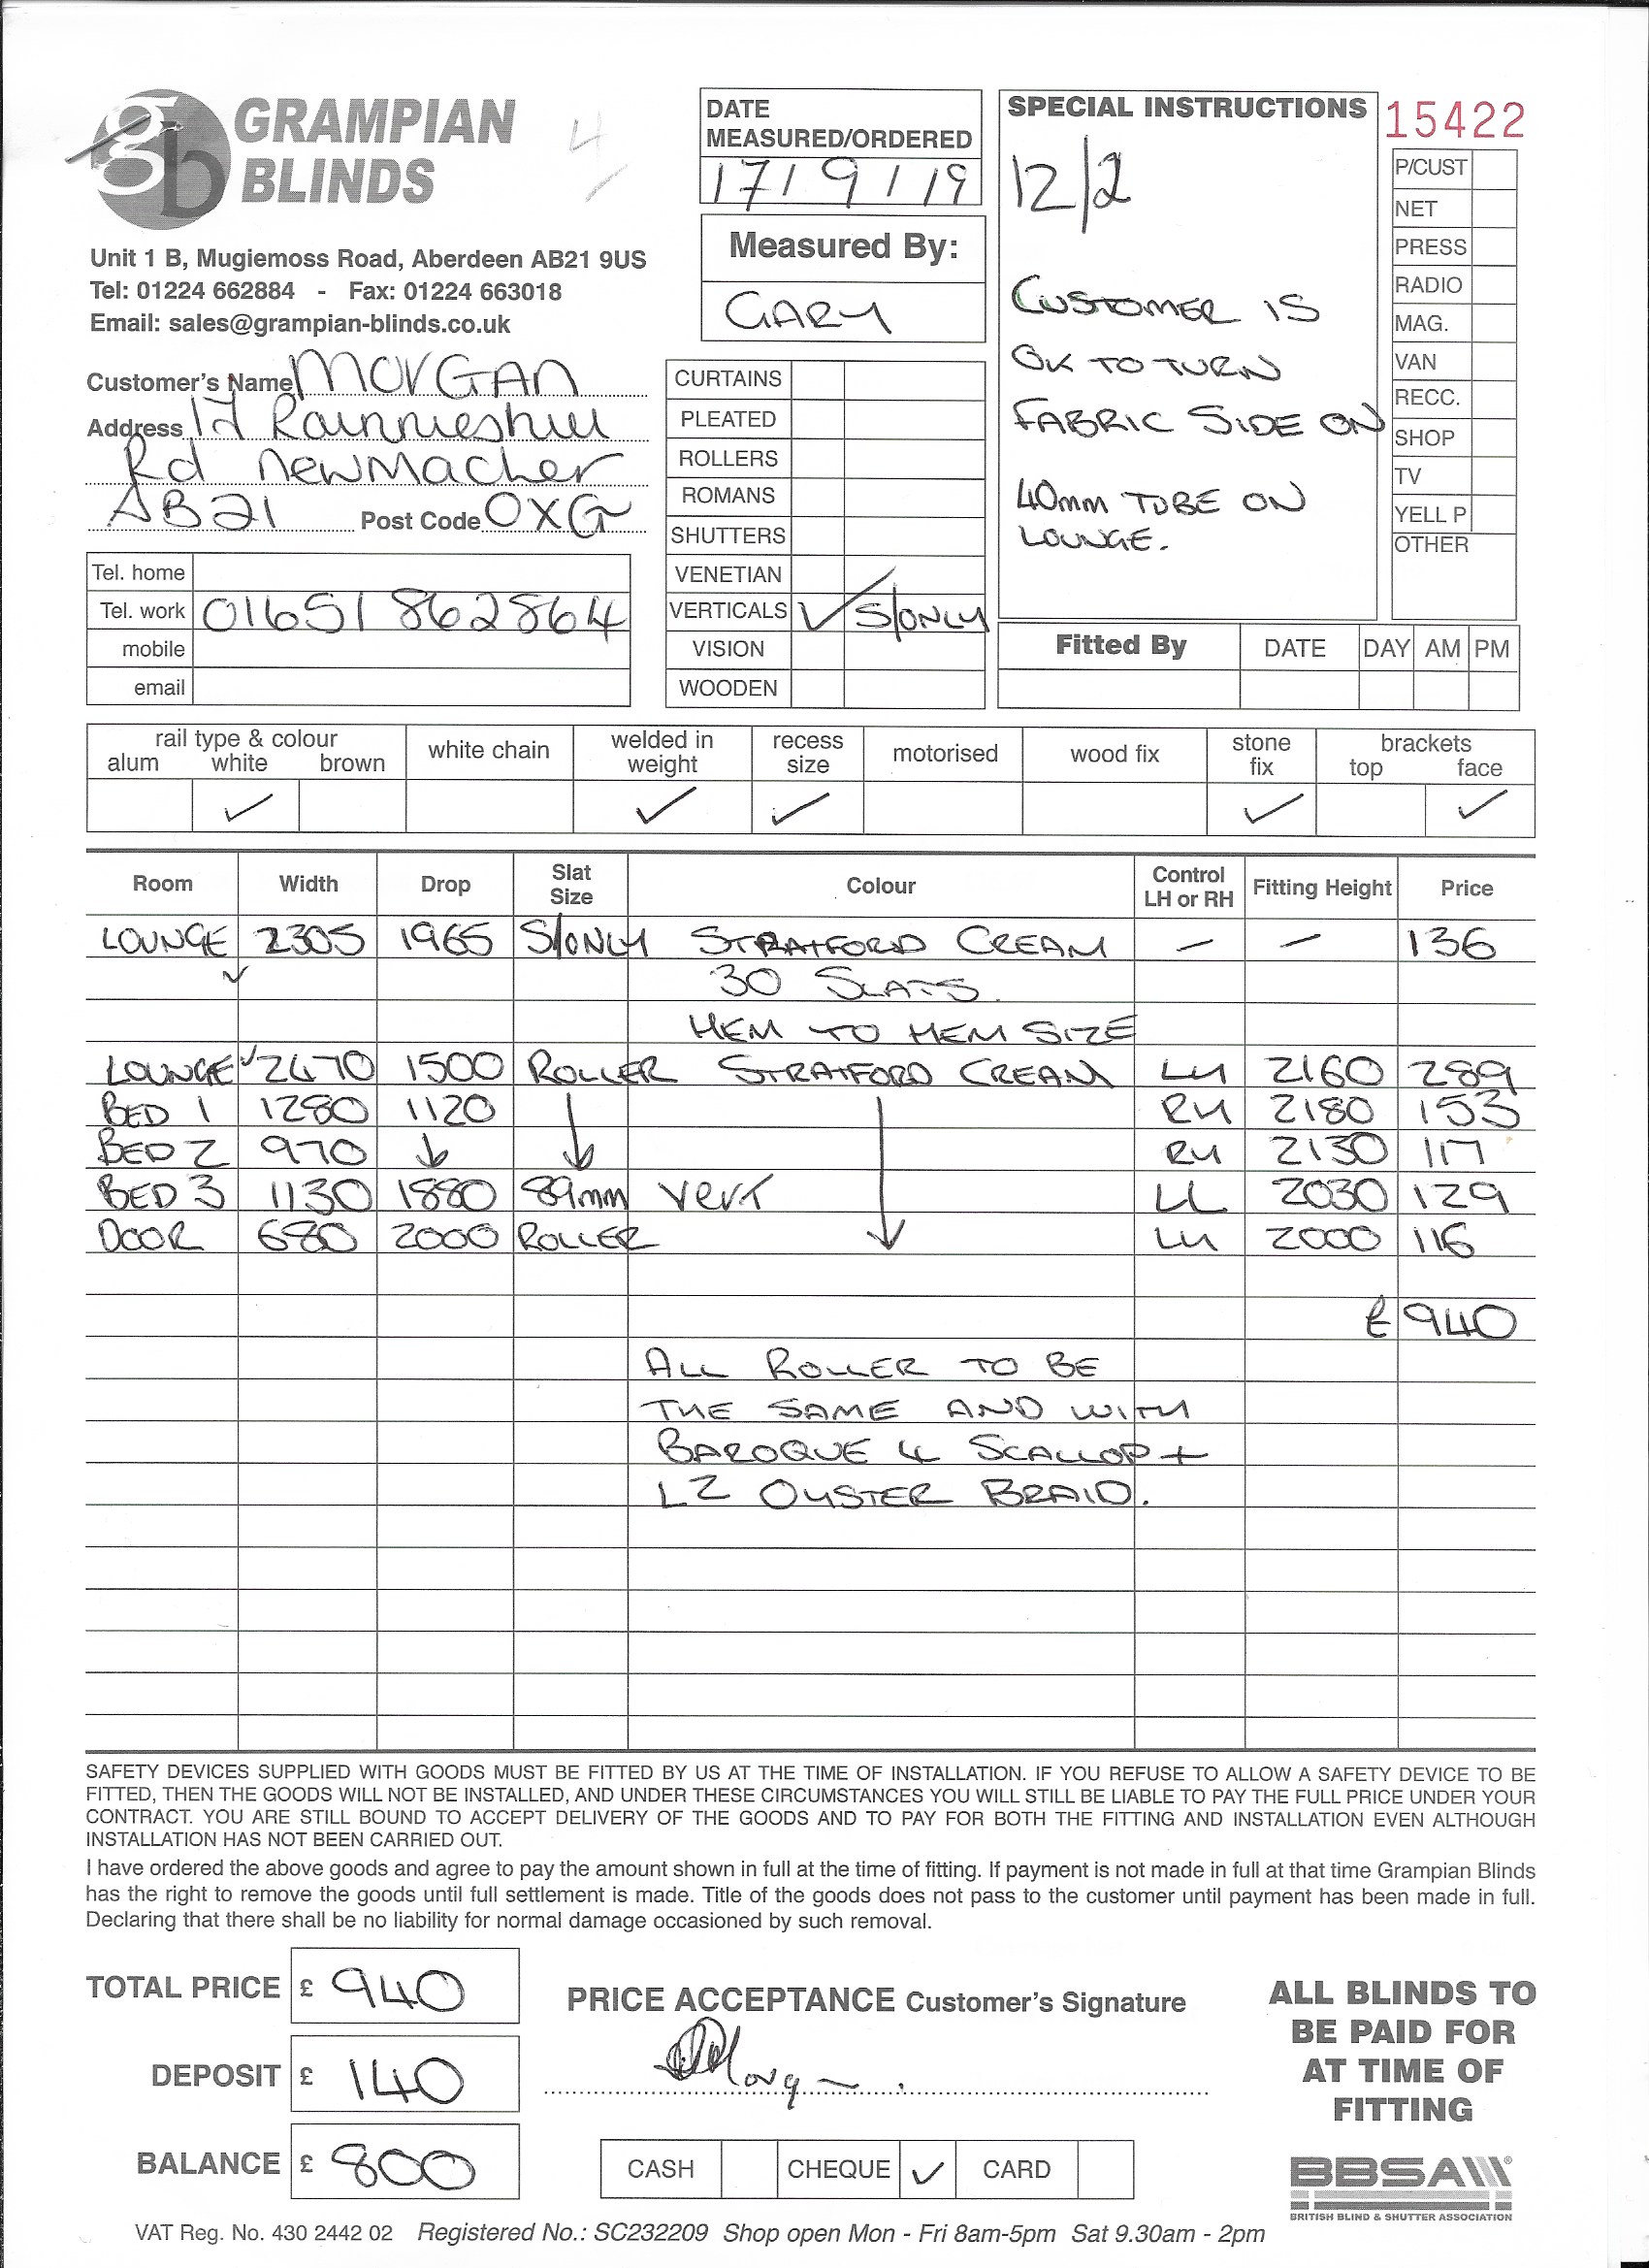 gb GRAMPIAN BLINDS
4
Unit 1 B, Mugiemoss Road, Aberdeen AB21 9US
Tel: 01224 662884 - Fax: 01224 663018
Email: sales@grampian-blinds.co.uk
Customer's Name MORGAN
Address 17 Rainnieshill
Rd Newmacher
AB21 Post Code 0XG
Tel. home
Tel. work 01651 862864
mobile
email
DATE MEASURED/ORDERED
17/9/19
Measured By:
GARY
CURTAINS
PLEATED
ROLLERS
ROMANS
SHUTTERS
VENETIAN
VERTICALS ✓ S/ONLY
VISION
WOODEN
SPECIAL INSTRUCTIONS
12/2
CUSTOMER IS
OK TO TURN
FABRIC SIDE ON
40mm TUBE ON
LOUNGE.
15422
P/CUST
NET
PRESS
RADIO
MAG.
VAN
RECC.
SHOP
TV
YELL P
OTHER
Fitted By DATE DAY AM PM
rail type & colour white chain welded in weight recess size motorised wood fix stone fix brackets
alum white brown top face
✓ ✓ ✓ ✓ ✓
Room Width Drop Slat Size Colour Control LH or RH Fitting Height Price
LOUNGE 2305 1965 S/ONLY STRATFORD CREAM – – 136
✓ 30 SLATS
HEM TO HEM SIZE
LOUNGE ✓ 2470 1500 ROLLER STRATFORD CREAM LH 2160 289
BED 1 1280 1120 ↓ ↓ RH 2180 153
BED 2 970 ↓ RH 2130 117
BED 3 1130 1880 89mm VERT LL 2030 129
DOOR 680 2000 ROLLER LH 2000 116
£ 940
ALL ROLLER TO BE
THE SAME AND WITH
BAROQUE 4 SCALLOP +
L2 OYSTER BRAID.
SAFETY DEVICES SUPPLIED WITH GOODS MUST BE FITTED BY US AT THE TIME OF INSTALLATION. IF YOU REFUSE TO ALLOW A SAFETY DEVICE TO BE
FITTED, THEN THE GOODS WILL NOT BE INSTALLED, AND UNDER THESE CIRCUMSTANCES YOU WILL STILL BE LIABLE TO PAY THE FULL PRICE UNDER YOUR
CONTRACT. YOU ARE STILL BOUND TO ACCEPT DELIVERY OF THE GOODS AND TO PAY FOR BOTH THE FITTING AND INSTALLATION EVEN ALTHOUGH
INSTALLATION HAS NOT BEEN CARRIED OUT.
I have ordered the above goods and agree to pay the amount shown in full at the time of fitting. If payment is not made in full at that time Grampian Blinds
has the right to remove the goods until full settlement is made. Title of the goods does not pass to the customer until payment has been made in full.
Declaring that there shall be no liability for normal damage occasioned by such removal.
TOTAL PRICE £ 940
DEPOSIT £ 140
BALANCE £ 800
PRICE ACCEPTANCE Customer's Signature
Morgan
CASH CHEQUE ✓ CARD
ALL BLINDS TO
BE PAID FOR
AT TIME OF
FITTING
BBSA
BRITISH BLIND & SHUTTER ASSOCIATION
VAT Reg. No. 430 2442 02 Registered No.: SC232209 Shop open Mon - Fri 8am-5pm Sat 9.30am - 2pm